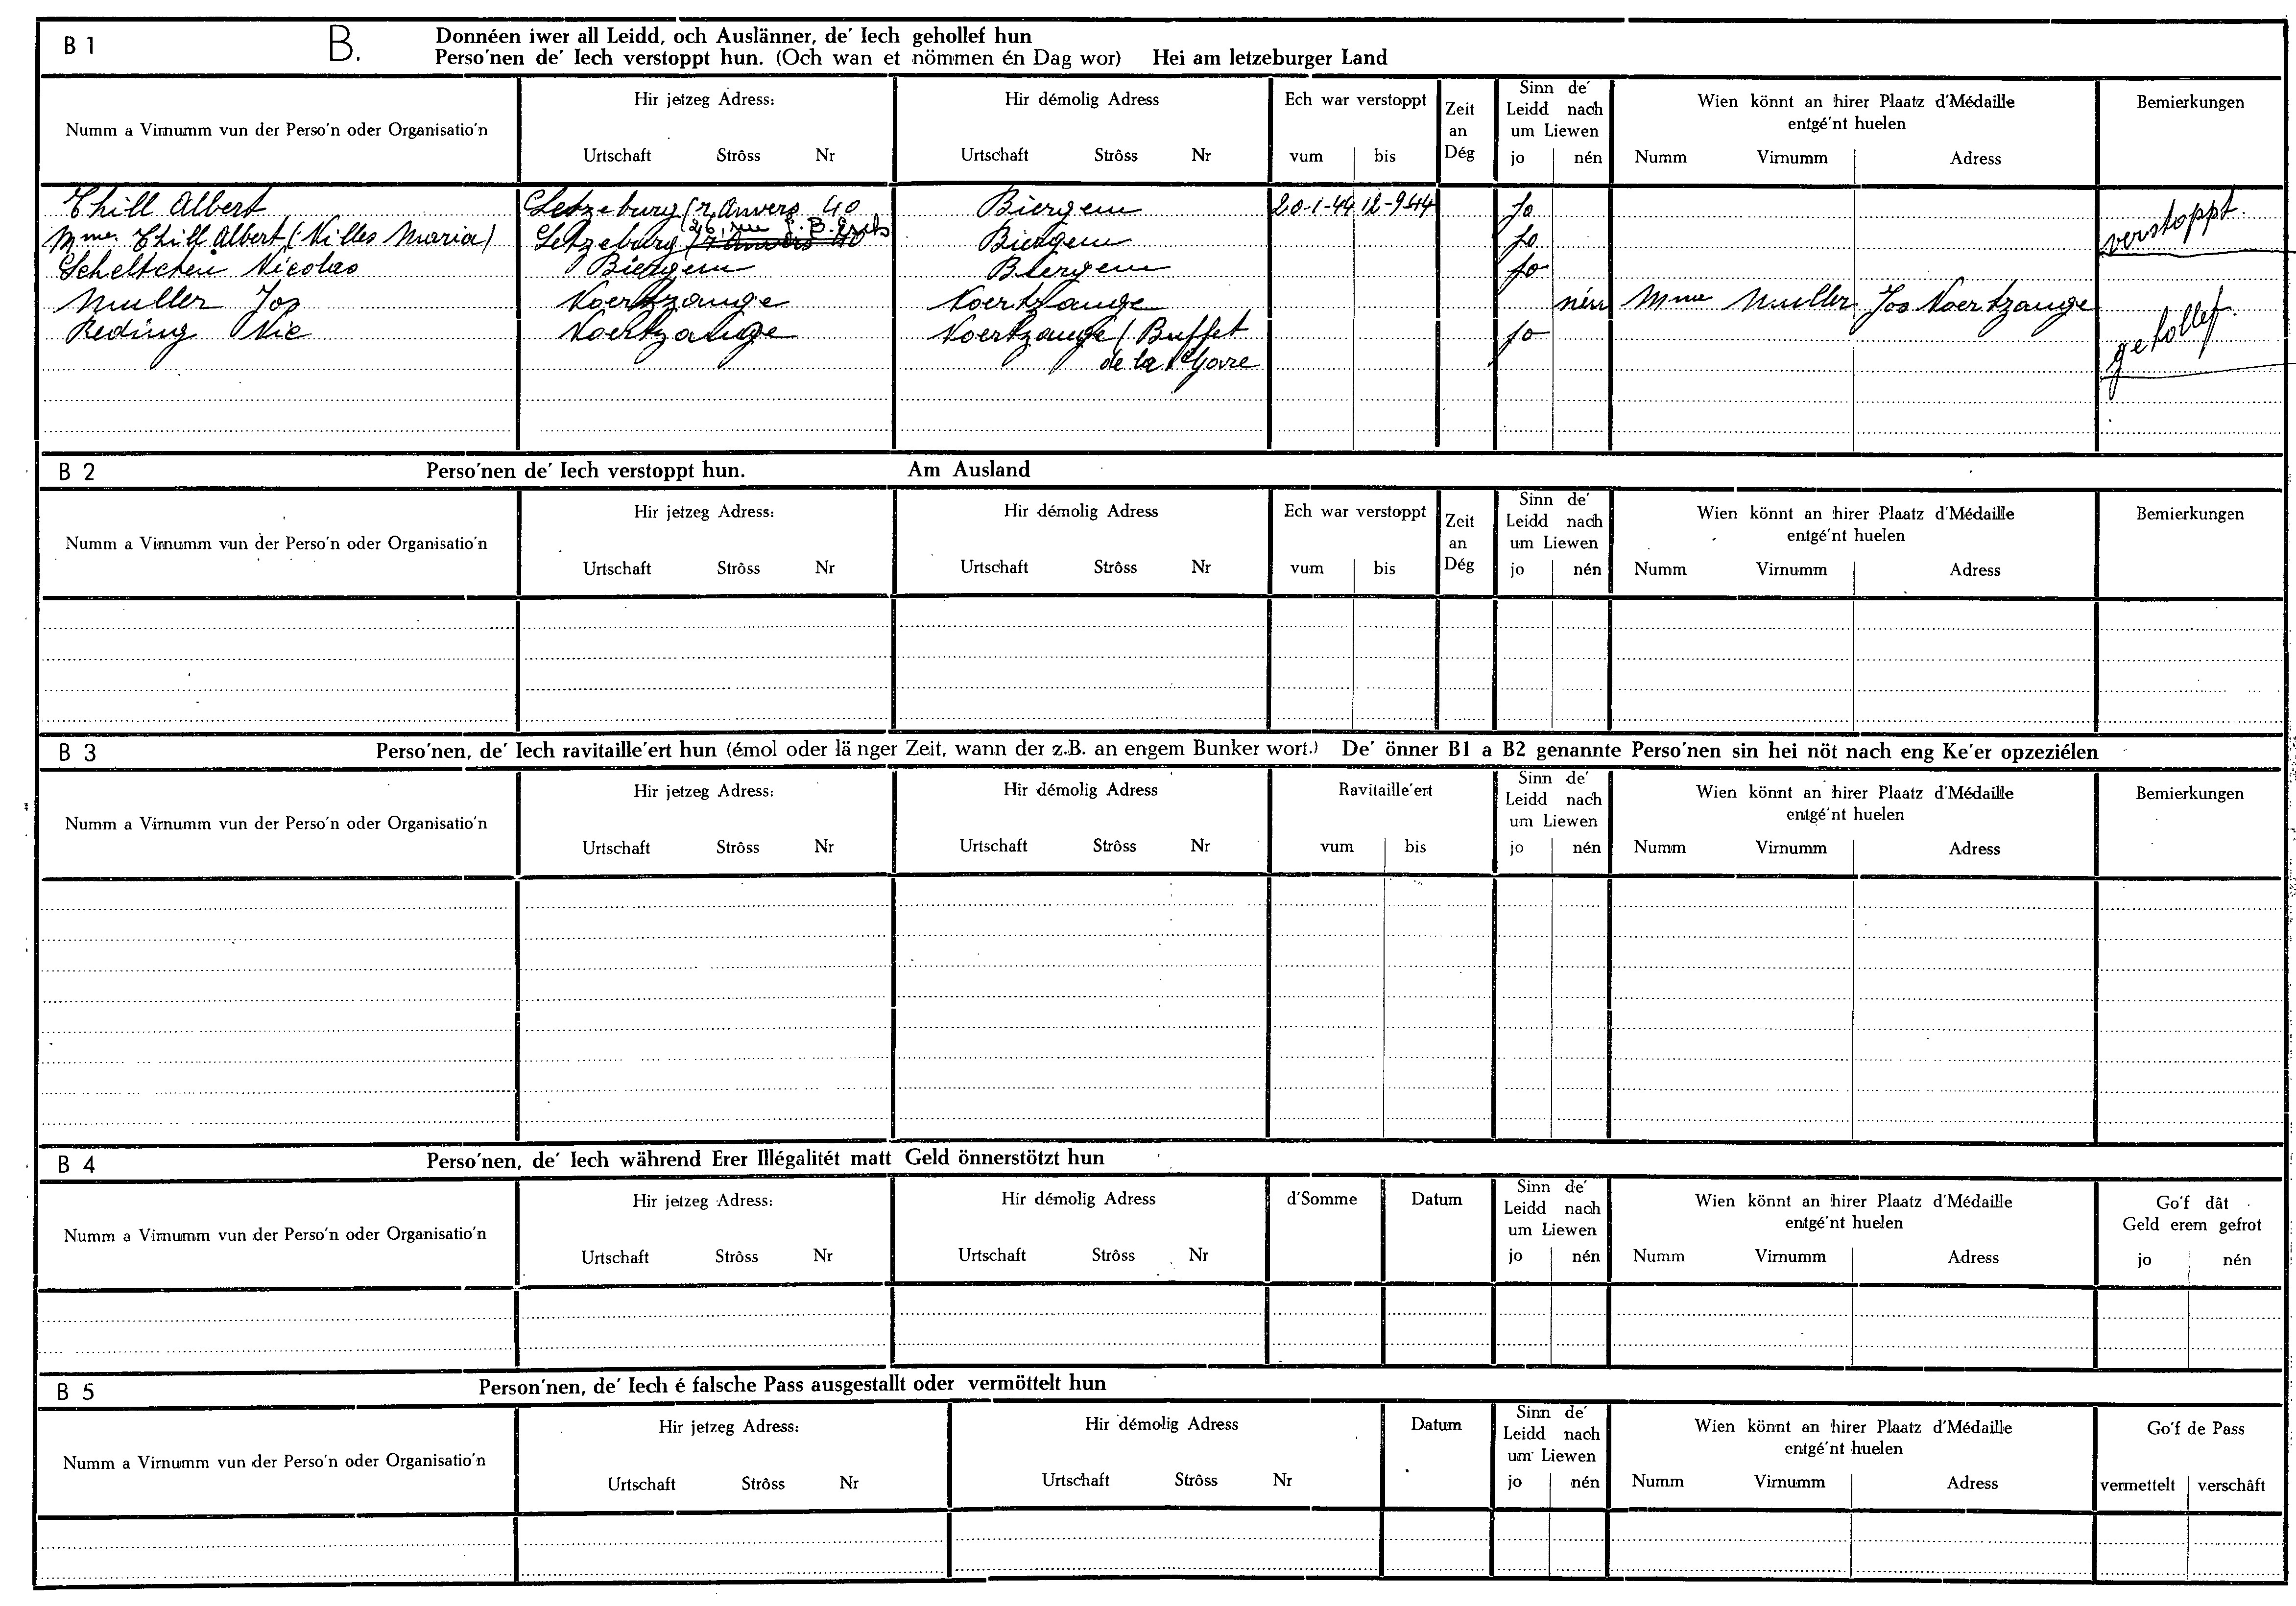 B 1 B. Donnéen iwer all Leidd, och Auslänner, de' Iech gehollef hun
Perso'nen de' Iech verstoppt hun. (Och wan et nömmen én Dag wor) Hei am letzeburger Land
Numm a Virnumm vun der Perso'n oder Organisatio'n
Hir jetzeg Adress:
Urtschaft Strôss Nr
Hir démolig Adress
Urtschaft Strôss Nr
Ech war verstoppt
vum bis
Zeit
an
Dég
Sinn de'
Leidd nach
um Liewen
jo nén
Wien könnt an hirer Plaatz d'Médaille
entgé'nt huelen
Numm Virnumm Adress
Bemierkungen
Thill Albert Letzeburg (r. Anvers 40 Biergem 20-1-44 12-9-44 Jo verstoppt.
Mme. Thill Albert (Nilles Maria) Letzeburg (26, rue J. B. Esch r. Anvers 40 Biergem Jo
Scheltchen Nicolas Biergem Biergem Jo
Muller Jos Noertzange Noertzange nén Mme Muller Jos Noertzange gehollef.
Reding Nic Noertzange Noertzange (Buffet Jo
de la Gare
B 2 Perso'nen de' Iech verstoppt hun. Am Ausland
Numm a Virnumm vun der Perso'n oder Organisatio'n
Hir jetzeg Adress:
Urtschaft Strôss Nr
Hir démolig Adress
Urtschaft Strôss Nr
Ech war verstoppt
vum bis
Zeit
an
Dég
Sinn de'
Leidd nach
um Liewen
jo nén
Wien könnt an hirer Plaatz d'Médaille
entgé'nt huelen
Numm Virnumm Adress
Bemierkungen
B 3 Perso'nen, de' Iech ravitaille'ert hun (émol oder länger Zeit, wann der z.B. an engem Bunker wort.) De' önner B1 a B2 genannte Perso'nen sin hei nöt nach eng Ke'er opzeziélen
Numm a Virnumm vun der Perso'n oder Organisatio'n
Hir jetzeg Adress:
Urtschaft Strôss Nr
Hir démolig Adress
Urtschaft Strôss Nr
Ravitaille'ert
vum bis
Sinn de'
Leidd nach
um Liewen
jo nén
Wien könnt an hirer Plaatz d'Médaille
entgé'nt huelen
Numm Virnumm Adress
Bemierkungen
B 4 Perso'nen, de' Iech während Erer Illégalitét matt Geld önnerstötzt hun
Numm a Virnumm vun der Perso'n oder Organisatio'n
Hir jetzeg Adress:
Urtschaft Strôss Nr
Hir démolig Adress
Urtschaft Strôss Nr
d'Somme
Datum
Sinn de'
Leidd nach
um Liewen
jo nén
Wien könnt an hirer Plaatz d'Médaille
entgé'nt huelen
Numm Virnumm Adress
Go'f dât
Geld erem gefrot
jo nén
B 5 Person'nen, de' Iech é falsche Pass ausgestallt oder vermöttelt hun
Numm a Virnumm vun der Perso'n oder Organisatio'n
Hir jetzeg Adress:
Urtschaft Strôss Nr
Hir démolig Adress
Urtschaft Strôss Nr
Datum
Sinn de'
Leidd nach
um Liewen
jo nén
Wien könnt an hirer Plaatz d'Médaille
entgé'nt huelen
Numm Virnumm Adress
Go'f de Pass
vermettelt verschâft